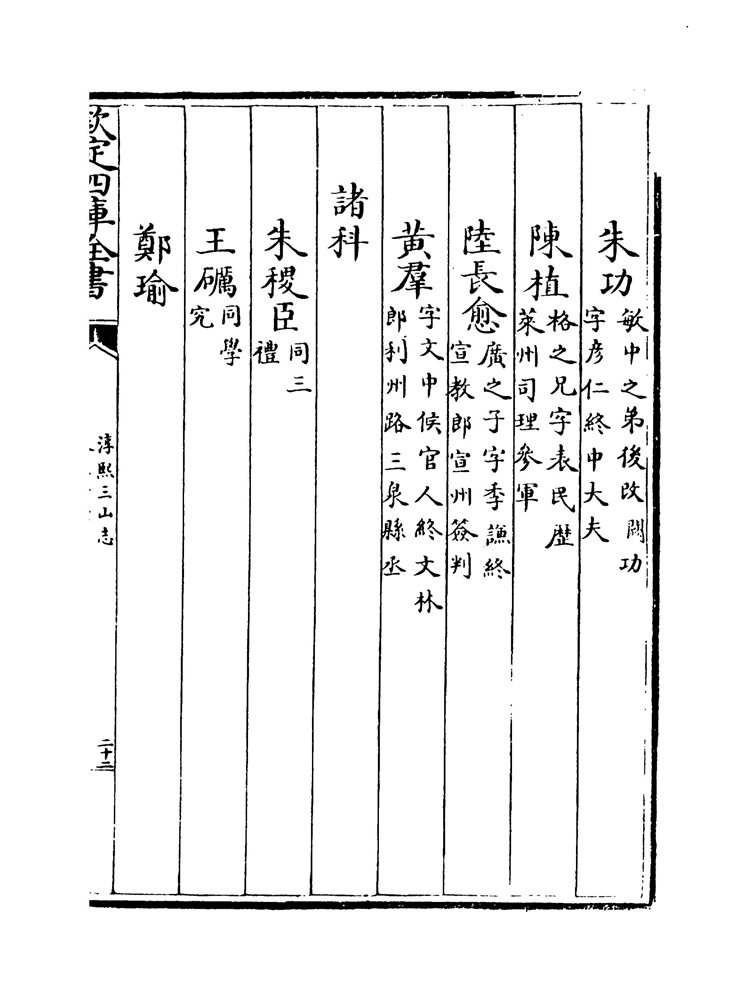 朱功
敏中之弟後改功
字彦仁終中大夫
陳植
格之兄字表民歴
萊州司理參軍
陸長愈
廣之子字季謙終
宣教郎宣州簽判
黄羣
字文中候官人終文林
郎利州路三泉縣丞
諸科
朱稷臣
同三
禮
王礪
同學
究
鄭瑜
欽定四庫全書
淳熙三山志
二十二